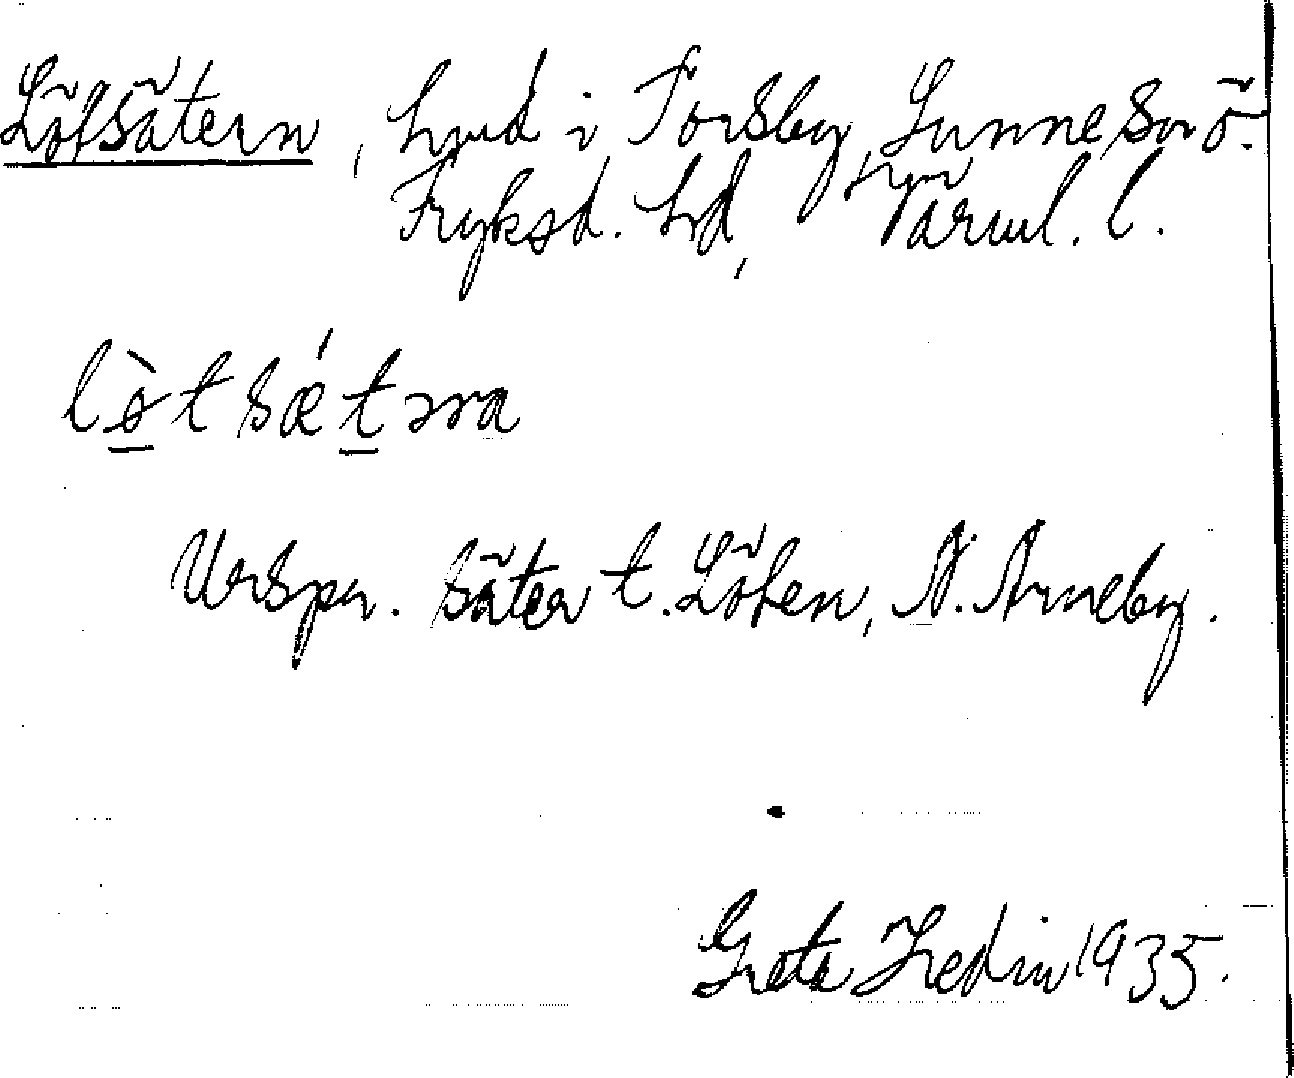 Löfsätern, hmd i Torsby, Sunne sn ö.
Fryksd. hd, Värml. l.
lò̱tsǽṯəra
Urspr. säter t. Löfen, N. Arneby.
Greta Hedin 1935.